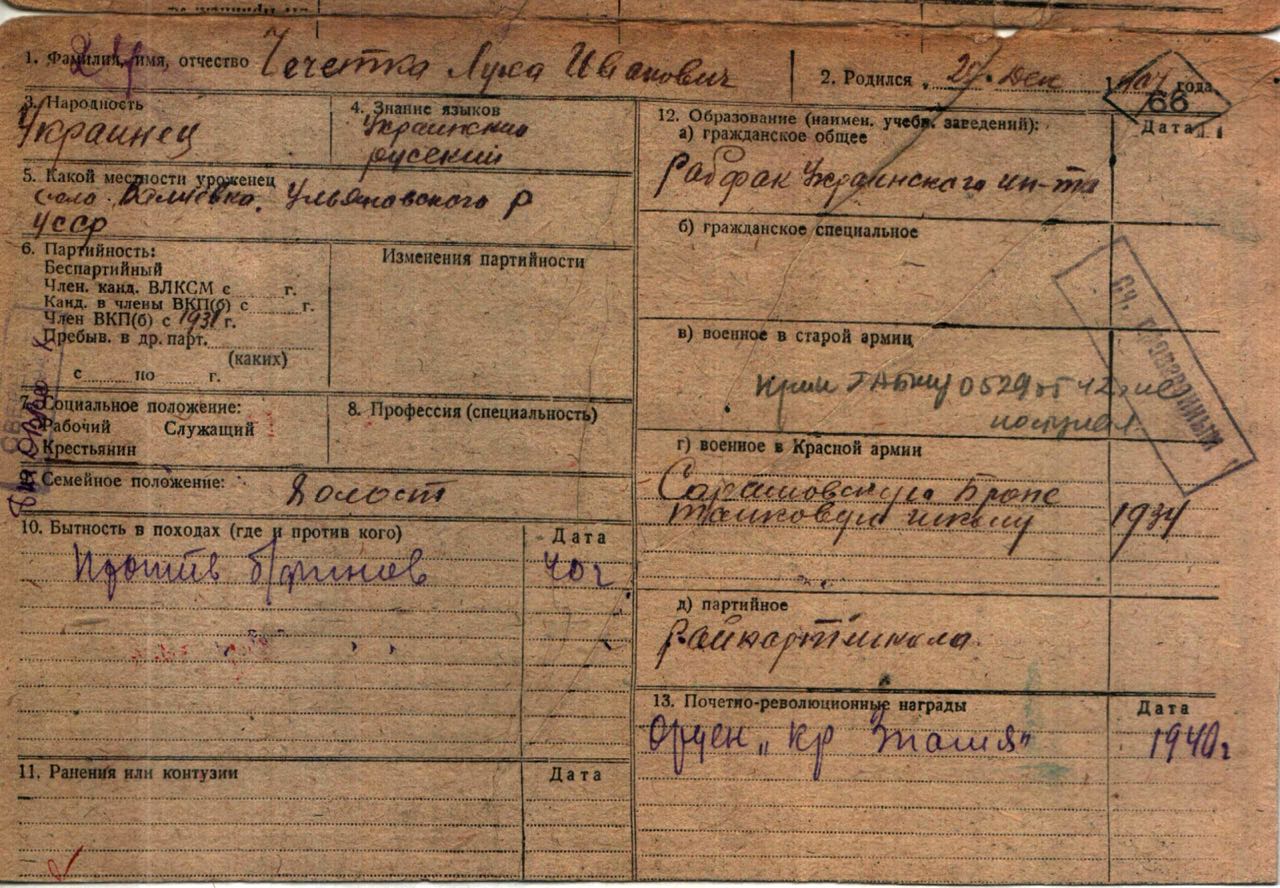 1. Фамилия, имя, отчество Чечетка Лука Иванович
2. Родился 27. Дек 1907 года
66
3. Народность
Украинец
4. Знание языков
Украинский
русский
5. Какой местности уроженец
село Ульяновского р
УССР
6. Партийность:
Беспартийный
Член. канд. ВЛКСМ с г.
Канд. в члены ВКП(б) с г.
Член ВКП(б) с 1931 г.
Пребыв. в др. парт.
(каких)
с по г.
Изменения партийности
7. Социальное положение:
Рабочий Служащий
Крестьянин
8. Профессия (специальность)
9. Семейное положение: Холост
10. Бытность в походах (где и против кого)
Дата
Против б/финов 40 г
11. Ранения или контузии
Дата
12. Образование (наимен. учебн. заведений):
а) гражданское общее
Дата
Рабфак Украинского ин-та
б) гражданское специальное
в) военное в старой армии
0529
г) военное в Красной армии
Саратовскую Броне
танковую школу 1934
д) партийное
Райпартшкола.
13. Почетно-революционные награды
Дата
Орден „кр Знамя" 1940 г